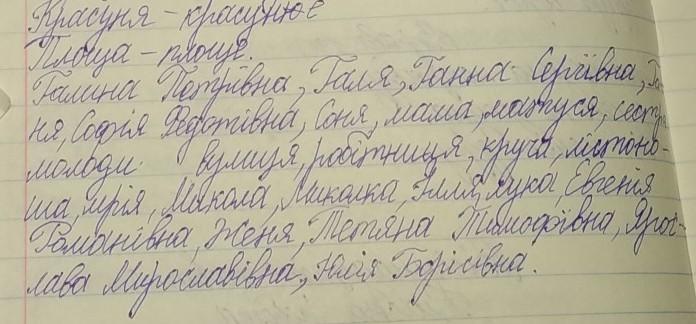 Красуня – красунює
Площа – площе.
Галина Петрівна, Галя, Ганна Сергіївна, Га-
ня, Софія Федотівна, Соня, мама, матуся, сестра
молоди вулиця, робітниця, круча, листоно-
ша, мрія, Микола, Миколка, Ілля, лука, Євгенія
Романівна, Женя, Тетяна Тимофіївна, Ярос-
лава Мирославівна, Юлія Борісівна.